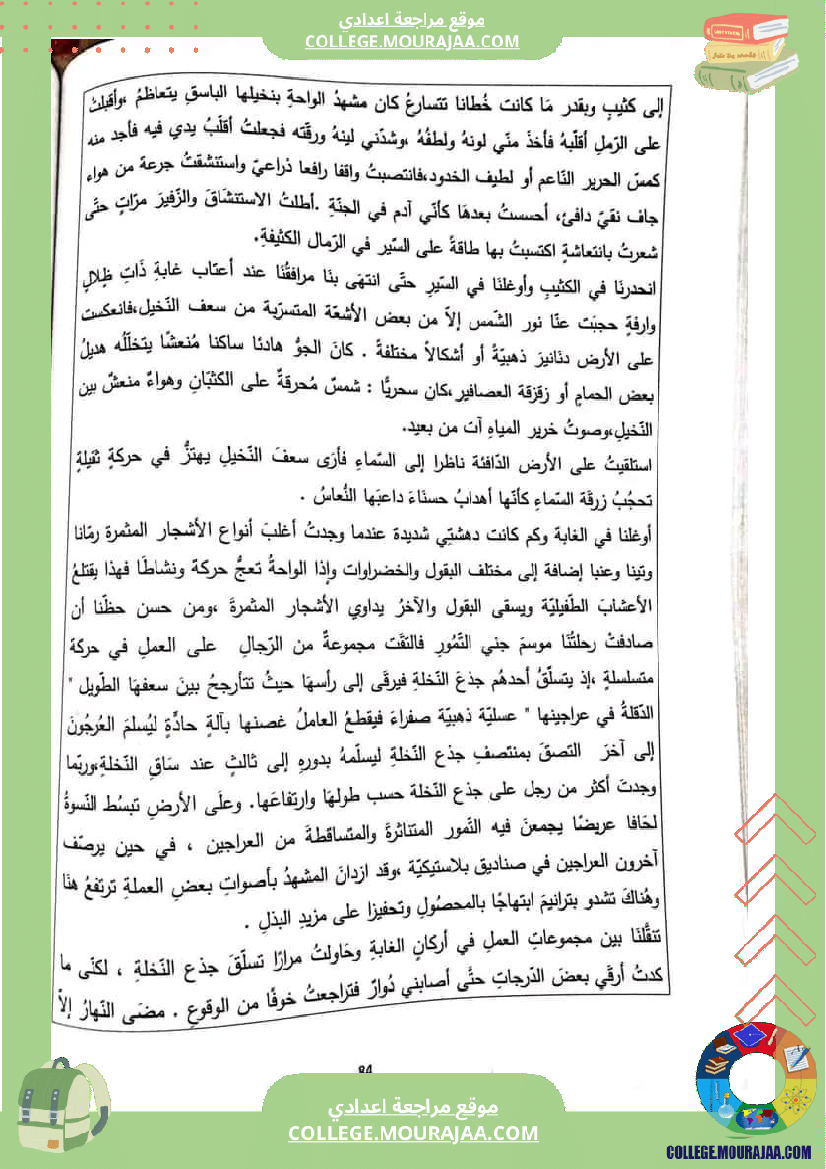 موقع مراجعة اعدادي
COLLEGE.MOURAJAA.COM
إلى كثيبٍ وبقدر مَا كانت خُطانا تتسارعُ كان مشهدُ الواحةِ بنخيلها الباسقِ يتعاظمُ ،وأقبلتُ
على الرّملِ أقلّبهُ فأخذَ منّي لونهُ ولطفُهُ ،وشدّني لينهُ ورقّته فجعلتُ أقلّبُ يدي فيه فأجد منه
كمسّ الحرير النّاعم أو لطيف الخدود،فانتصبتُ واقفا رافعا ذراعيّ واستنشقتُ جرعة من هواء
جاف نقيّ دافئ، أحسستُ بعدهَا كأنّي آدم في الجنّةِ .أطلتُ الاستنشَاقَ والزّفيرَ مرّاتٍ حتَّى
شعرتُ بانتعاشةٍ اكتسبتُ بها طاقةً على السّيرِ في الرّمال الكثيفةِ.
انحدرنَا في الكثيبِ وأوغلنَا في السّيرِ حتَّى انتهَى بنَا مرافقُنَا عند أعتاب غابةِ ذَاتِ ظِلالٍ
وارفةٍ حجبَت عنّا نور الشّمس إلاّ من بعض الأشعّة المتسرّبة من سعف النّخيل،فانعكست
على الأرض دنَانيرَ ذهبيّةً أو أشكالاً مختلفةً . كانَ الجوُّ هادئا ساكنا مُنعشًا يتخلّلُه هديلُ
بعض الحمامِ أو زقزقة العصافير،كان سحريًّا : شمسٌ مُحرقةٌ على الكثبَانِ وهواءٌ منعشٌ بين
النّخيلِ،وصوتُ خرير المياهِ آت من بعيد.
استلقيتُ على الأرض الدّافئة ناظرا إلى السَّماءِ فأرَى سعفَ النّخيلِ يهتزُّ في حركةٍ ثقيلةٍ
تحجُبُ زرقَة السّماءِ كأنّها أهدابُ حسنَاءَ داعبَها النُّعاسُ .
أوغلنا في الغابة وكم كانت دهشتِي شديدة عندما وجدتُ أغلبَ أنواع الأشجار المثمرة رمّانا
وتينا وعنبا إضافة إلى مختلف البقول والخضراوات وإذا الواحةُ تعجُّ حركة ونشاطًا فهذا يقتلعُ
الأعشابَ الطّفيليّة ويسقى البقول والآخرُ يداوي الأشجار المثمرةَ ،ومن حسن حظّنا أن
صادفتْ رحلتُنَا موسمَ جني التَّمُورِ فالتقَت مجموعةٌ من الرّجالِ على العملِ في حركة
متسلسلةٍ ،إذ يتسلّقُ أحدهُم جذعَ النّخلةِ فيرقَى إلى رأسهَا حيثُ تتأرجحُ بينَ سعفهَا الطّويل "
الدّقلةُ في عراجينها " عسليّة ذهبيّة صفراءَ فيقطعُ العاملُ غصنهَا بآلةٍ حادَّةٍ ليُسلمَ العُرجُونَ
إلى آخرَ التصقَ بمنتصفِ جذع النّخلةِ ليسلّمهُ بدورهِ إلى ثالثٍ عند سَاقِ النّخلةِ،وربّما
وجدتَ أكثر من رجل على جذع النّخلة حسب طولهَا وارتفاعَها. وعلَى الأرضِ تبسُط النّسوةُ
لحَافا عريضًا يجمعنَ فيه التّمور المتناثرةَ والمتسَاقطةَ من العراجين ، في حين يرصّف
آخرون العراجين في صناديق بلاستيكيّة ،وقد ازدانَ المشهدُ بأصواتِ بعضِ العملةِ ترتفعُ هنَا
وهُناكَ تشدو بترانيمَ ابتهاجًا بالمحصُولِ وتحفيزا على مزيدِ البذلِ .
تنقَّلنَا بين مجموعاتِ العملِ في أركَانِ الغابةِ وحَاولتُ مرارًا تسلّقَ جذع النّخلةِ ، لكنّى ما
كدتُ أرقَي بعضَ الدّرجاتِ حتَّى أصابني دُوارٌ فتراجعتُ خوفًا من الوقوعِ . مضَى النّهارُ إلاّ
84
موقع مراجعة اعدادي
COLLEGE.MOURAJAA.COM
COLLEGE.MOURAJAA.COM